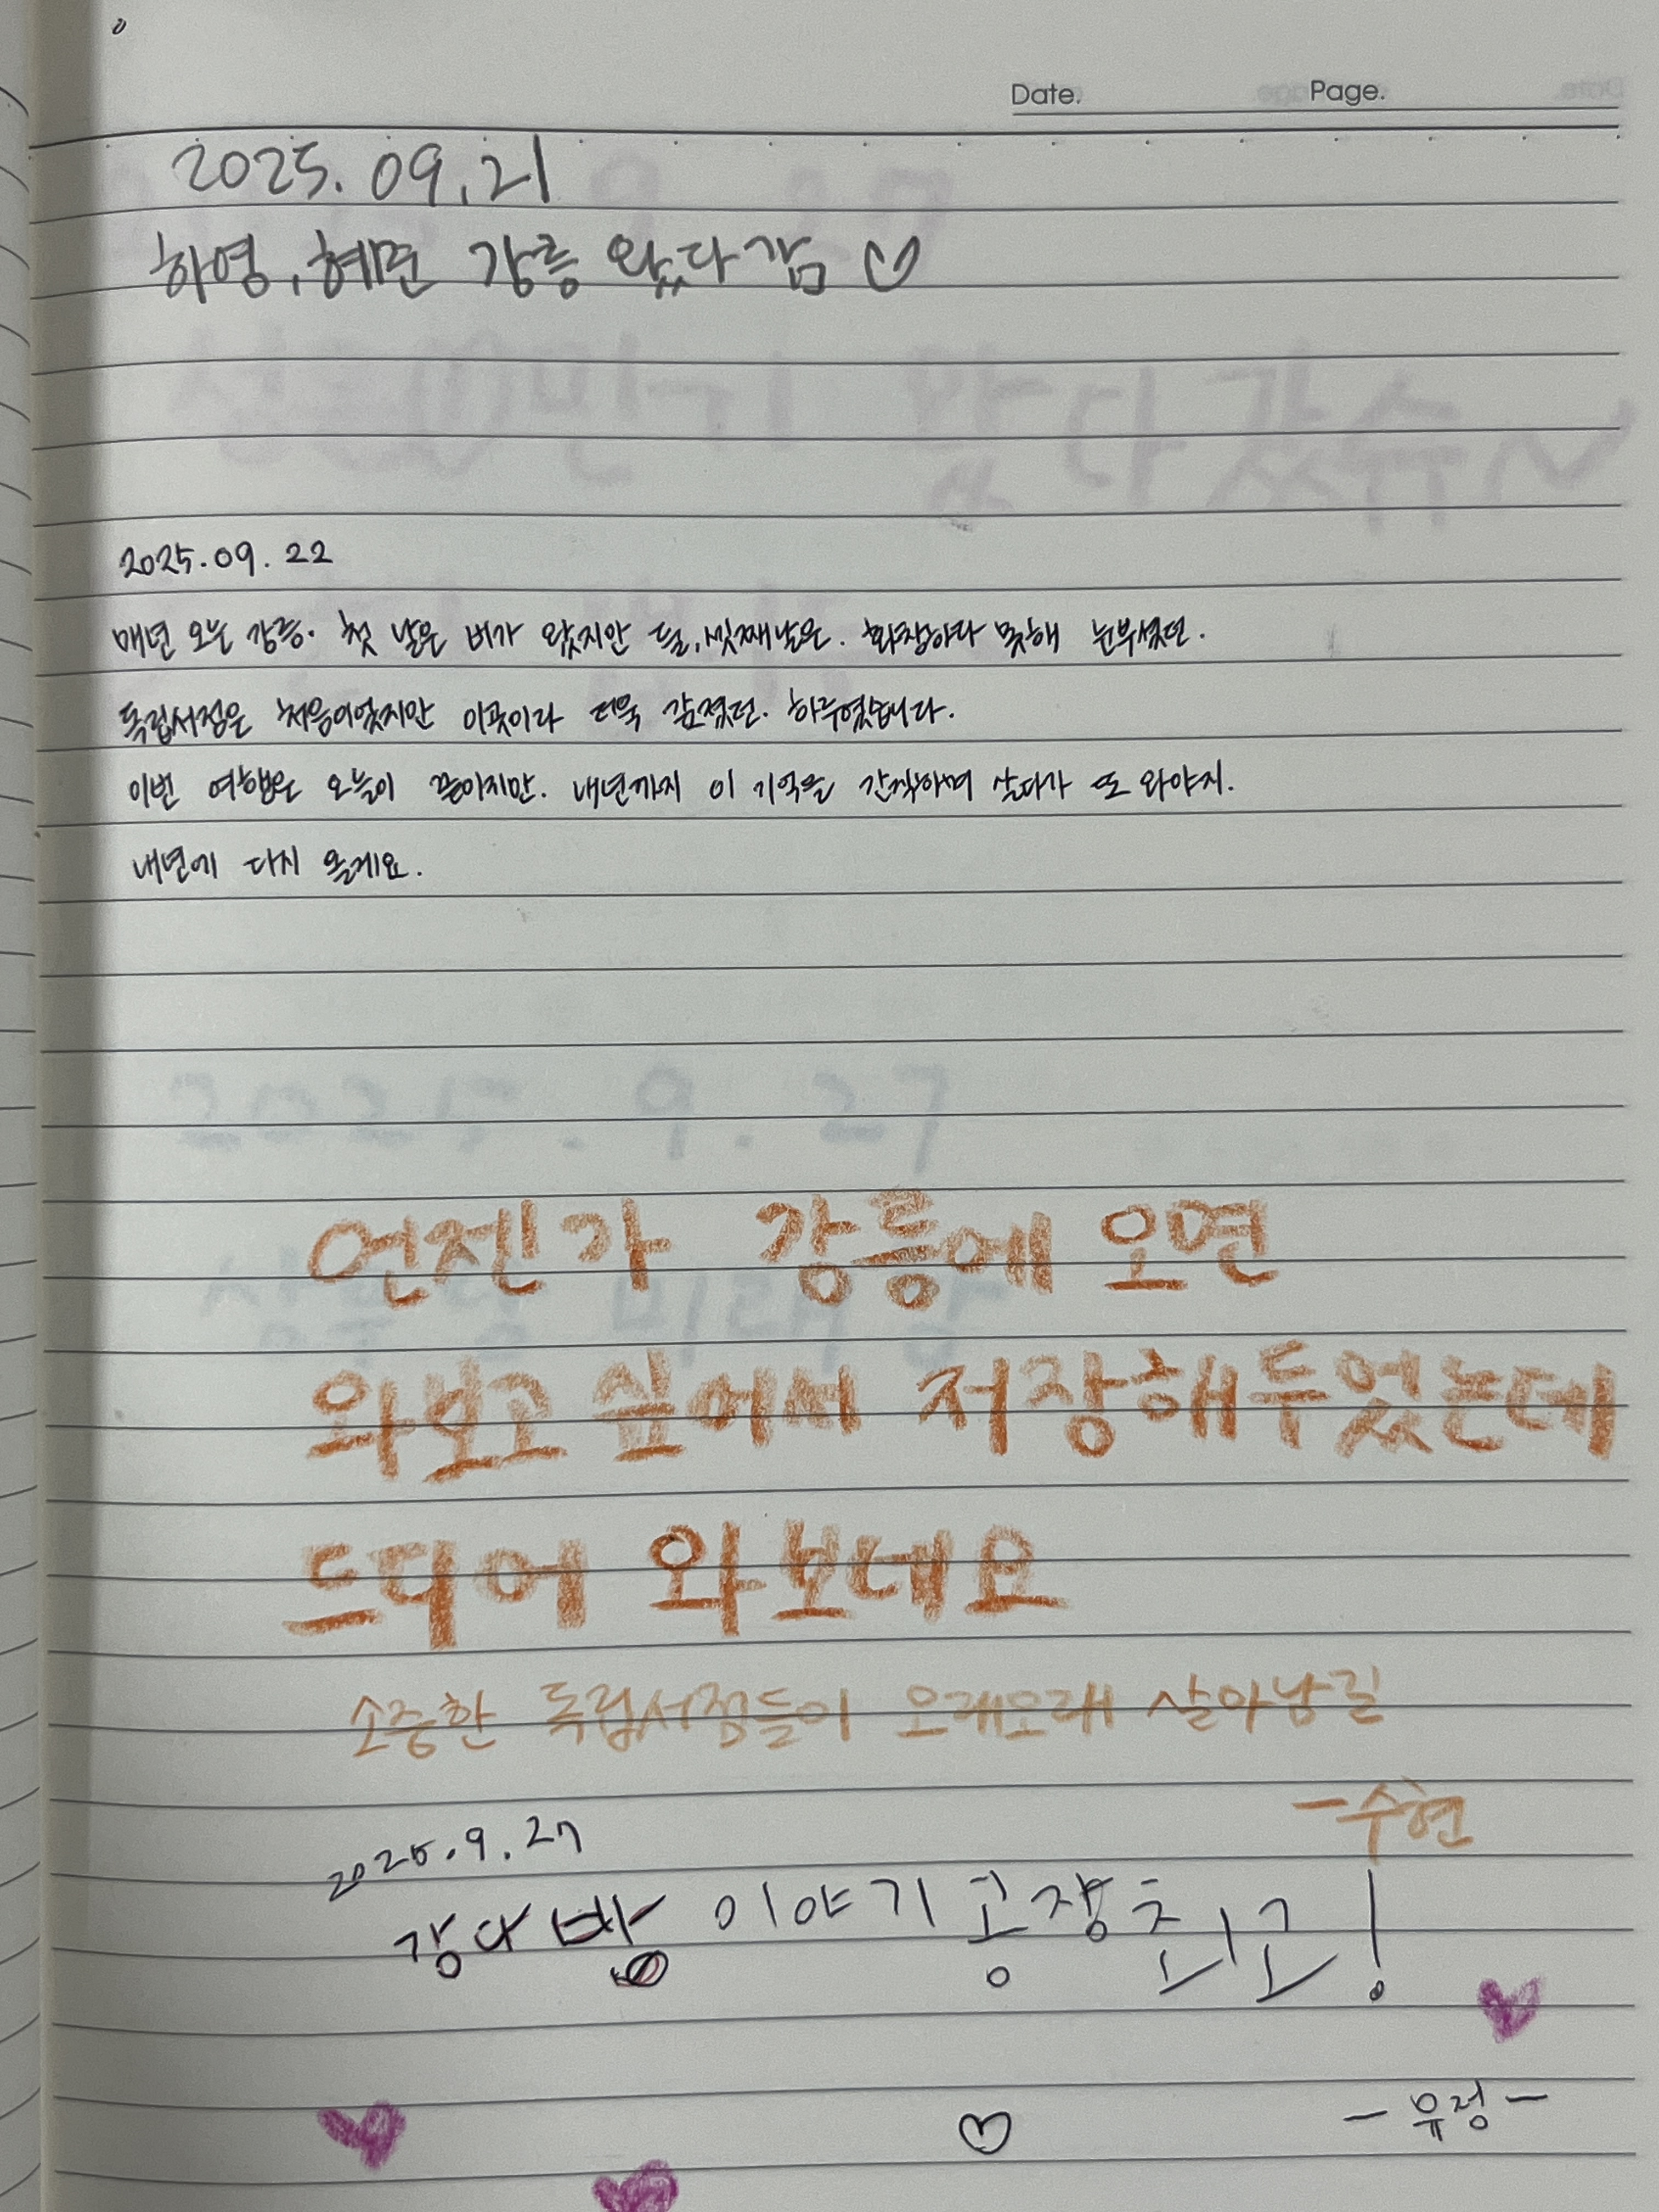 Date. Page.
2025. 09. 21
하영, 혜민 강릉 왔다감 ♡
2025. 09. 22
매년 오는 강릉. 첫 날은 비가 왔지만 둘, 셋째날은. 화창하다 못해 눈부셨던.
독립서점은 처음이었지만 이곳이라 더욱 값졌던. 하루였습니다.
이번 여행은 오늘이 끝이지만. 내년까지 이 기억을 간직하며 살다가 또 와야지.
내년에 다시 올게요.
언젠가 강릉에 오면
와보고 싶어서 저장해두었는데
드디어 와보네요
소중한 독립서점들이 오래오래 살아남길
- 수현
2025. 9. 27
강다방 이야기 공장 최고!
♡
- 유정 -